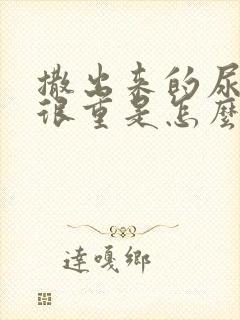 撒出来的尿
很重是怎麼
達嘎鄉